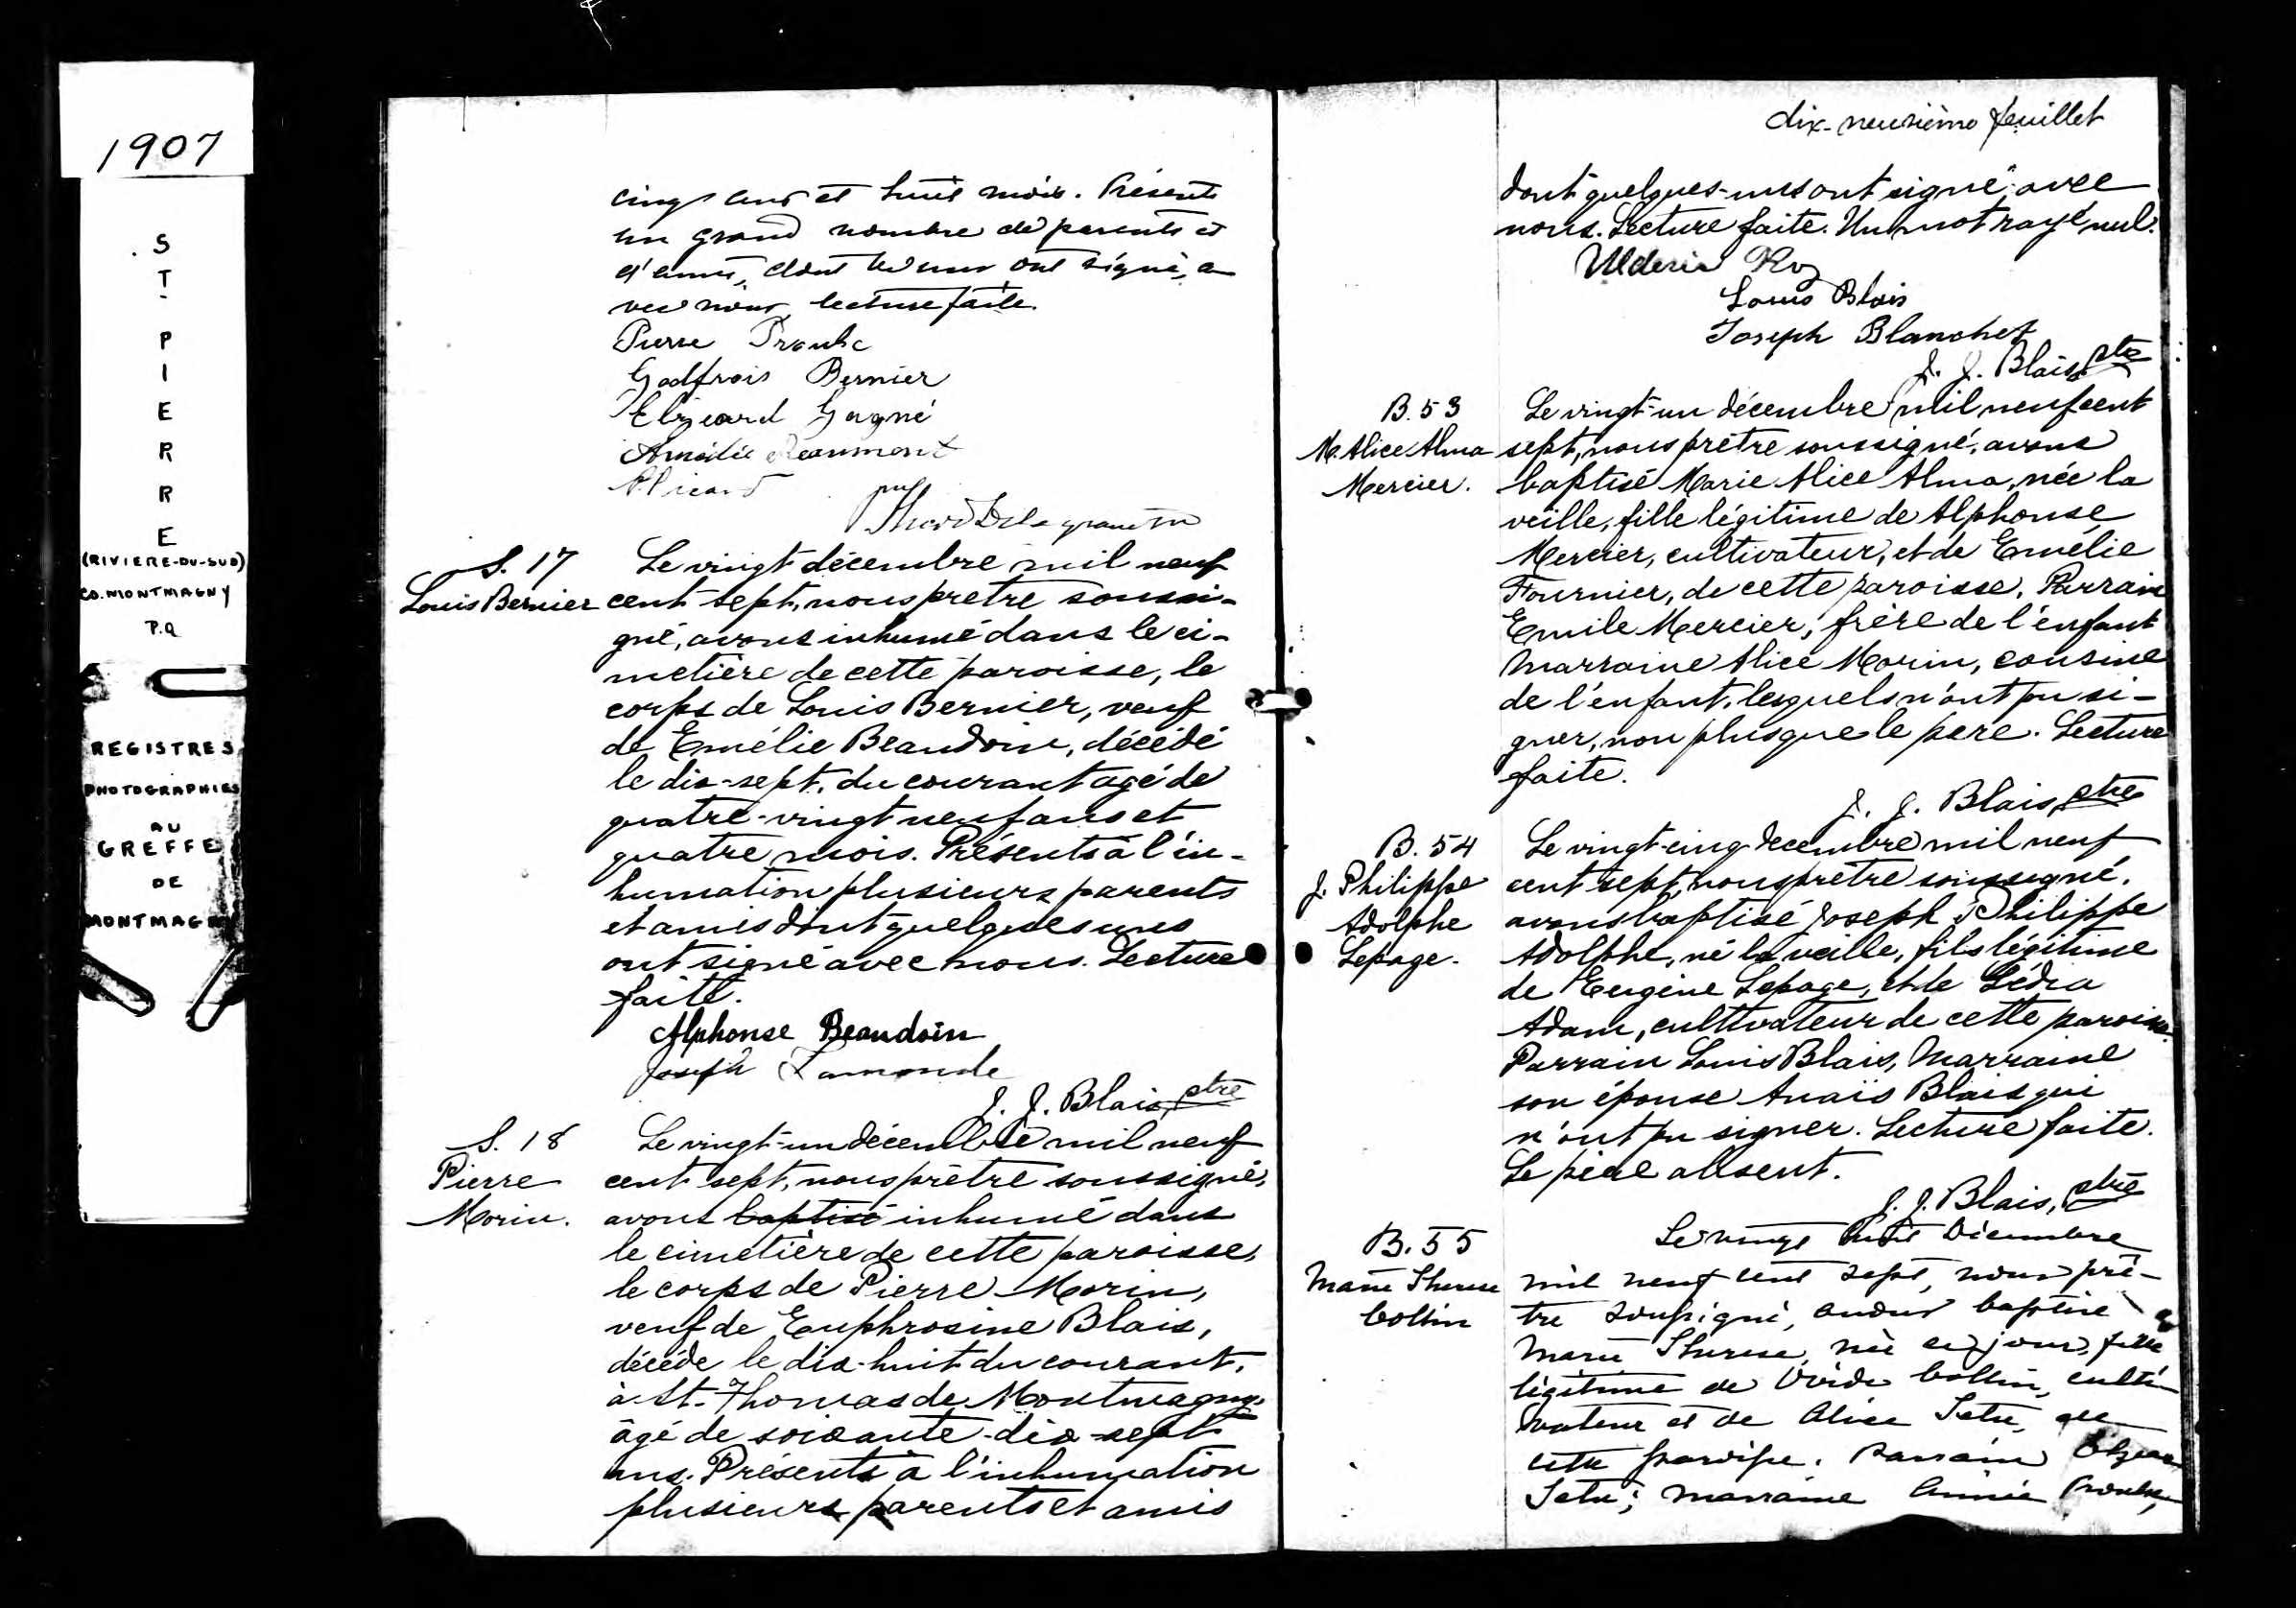 1907
ST-PIERRE
(RIVIERE-DU-SUD)
CO. MONTMAGNY
P.Q
REGISTRES
PHOTOGRAPHIES
AU
GREFFE
DE
MONTMAGNY
cinq ans et huit mois. Présents
un grand nombre de parents et
d'amis, dont les uns ont signé, a
vec nous, lecture faite.
Pierre Proulx
Godfrois Bernier
Elzeard Gagné
Amédée Beaumont
Picard
S. 17
Louis Bernier
Le vingt décembre mil neuf
cent sept, nous prêtre soussi-
gné, avons inhumé dans le ci-
metière de cette paroisse, le
corps de Louis Bernier, veuf
de Emélie Beaudoin, décédé
le dix-sept, du courant agé de
quatre-vingt neuf ans et
quatre mois. Présents à l'in-
humation plusieurs parents
et amis dont quelques uns
ont signé avec nous. Lecture
faite.
Alphonse Beaudoin
Joseph Lamonde
J. J. Blais, ptre
S. 18
Pierre
Morin.
Le vingt-un décembre mil neuf
cent sept, nous prêtre soussigné,
avons baptisé inhumé dans
le cimetière de cette paroisse,
le corps de Pierre Morin,
veuf de Euphrosine Blais,
décéde le dix-huit du courant,
à St-Thomas de Montmagny,
âgé de soixante-dix-sept
ans. Présents à l'inhumation
plusieurs parents et amis
dix-neuvième feuillet
dont quelques-uns ont signé avec
nous. Lecture faite. Un mot rayé nul.
Ulderic Roy
Louis Blais
Joseph Blanchet
J. J. Blais ptre
B. 53
M. Alice Alma
Mercier.
Le vingt-un décembre mil neuf cent
sept, nous prêtre soussigné, avons
baptisé Marie Alice Alma, née la
veille, fille légitime de Alphonse
Mercier, cultivateur, et de Emélie
Fournier, de cette paroisse. Parrain
Emile Mercier, frère de l'enfant
marraine Alice Morin, cousine
de l'enfant, lesquels n'ont pu si-
gner, non plus que le père. Lecture
faite.
J. J. Blais, ptre
B. 54
J. Philippe
Adolphe
Lepage.
Le vingt-cinq decembre mil neuf
cent sept, nous prêtre soussigné,
avons baptisé Joseph Philippe
Adolphe, né la veille, fils légitime
de Eugène Lepage, et de Lédia
Adam, cultivateur de cette paroisse.
Parrain Louis Blais, Marraine
son épouse Anaïs Blais qui
n'ont pu signer. Lecture faite.
Le père absent.
J. J. Blais, ptre
B. 55
Marie Therese
Collin
Le vingt huit Décembre
mil neuf cent sept, nous prê-
tre soussigné, avons baptisé
Marie Therese, née ce jour, fille
légitime de Ovide Collin, culti-
vateur et de Alice Tetu, de
cette paroisse. Parrain Elzear
Tetu; marraine Annie Proulx,